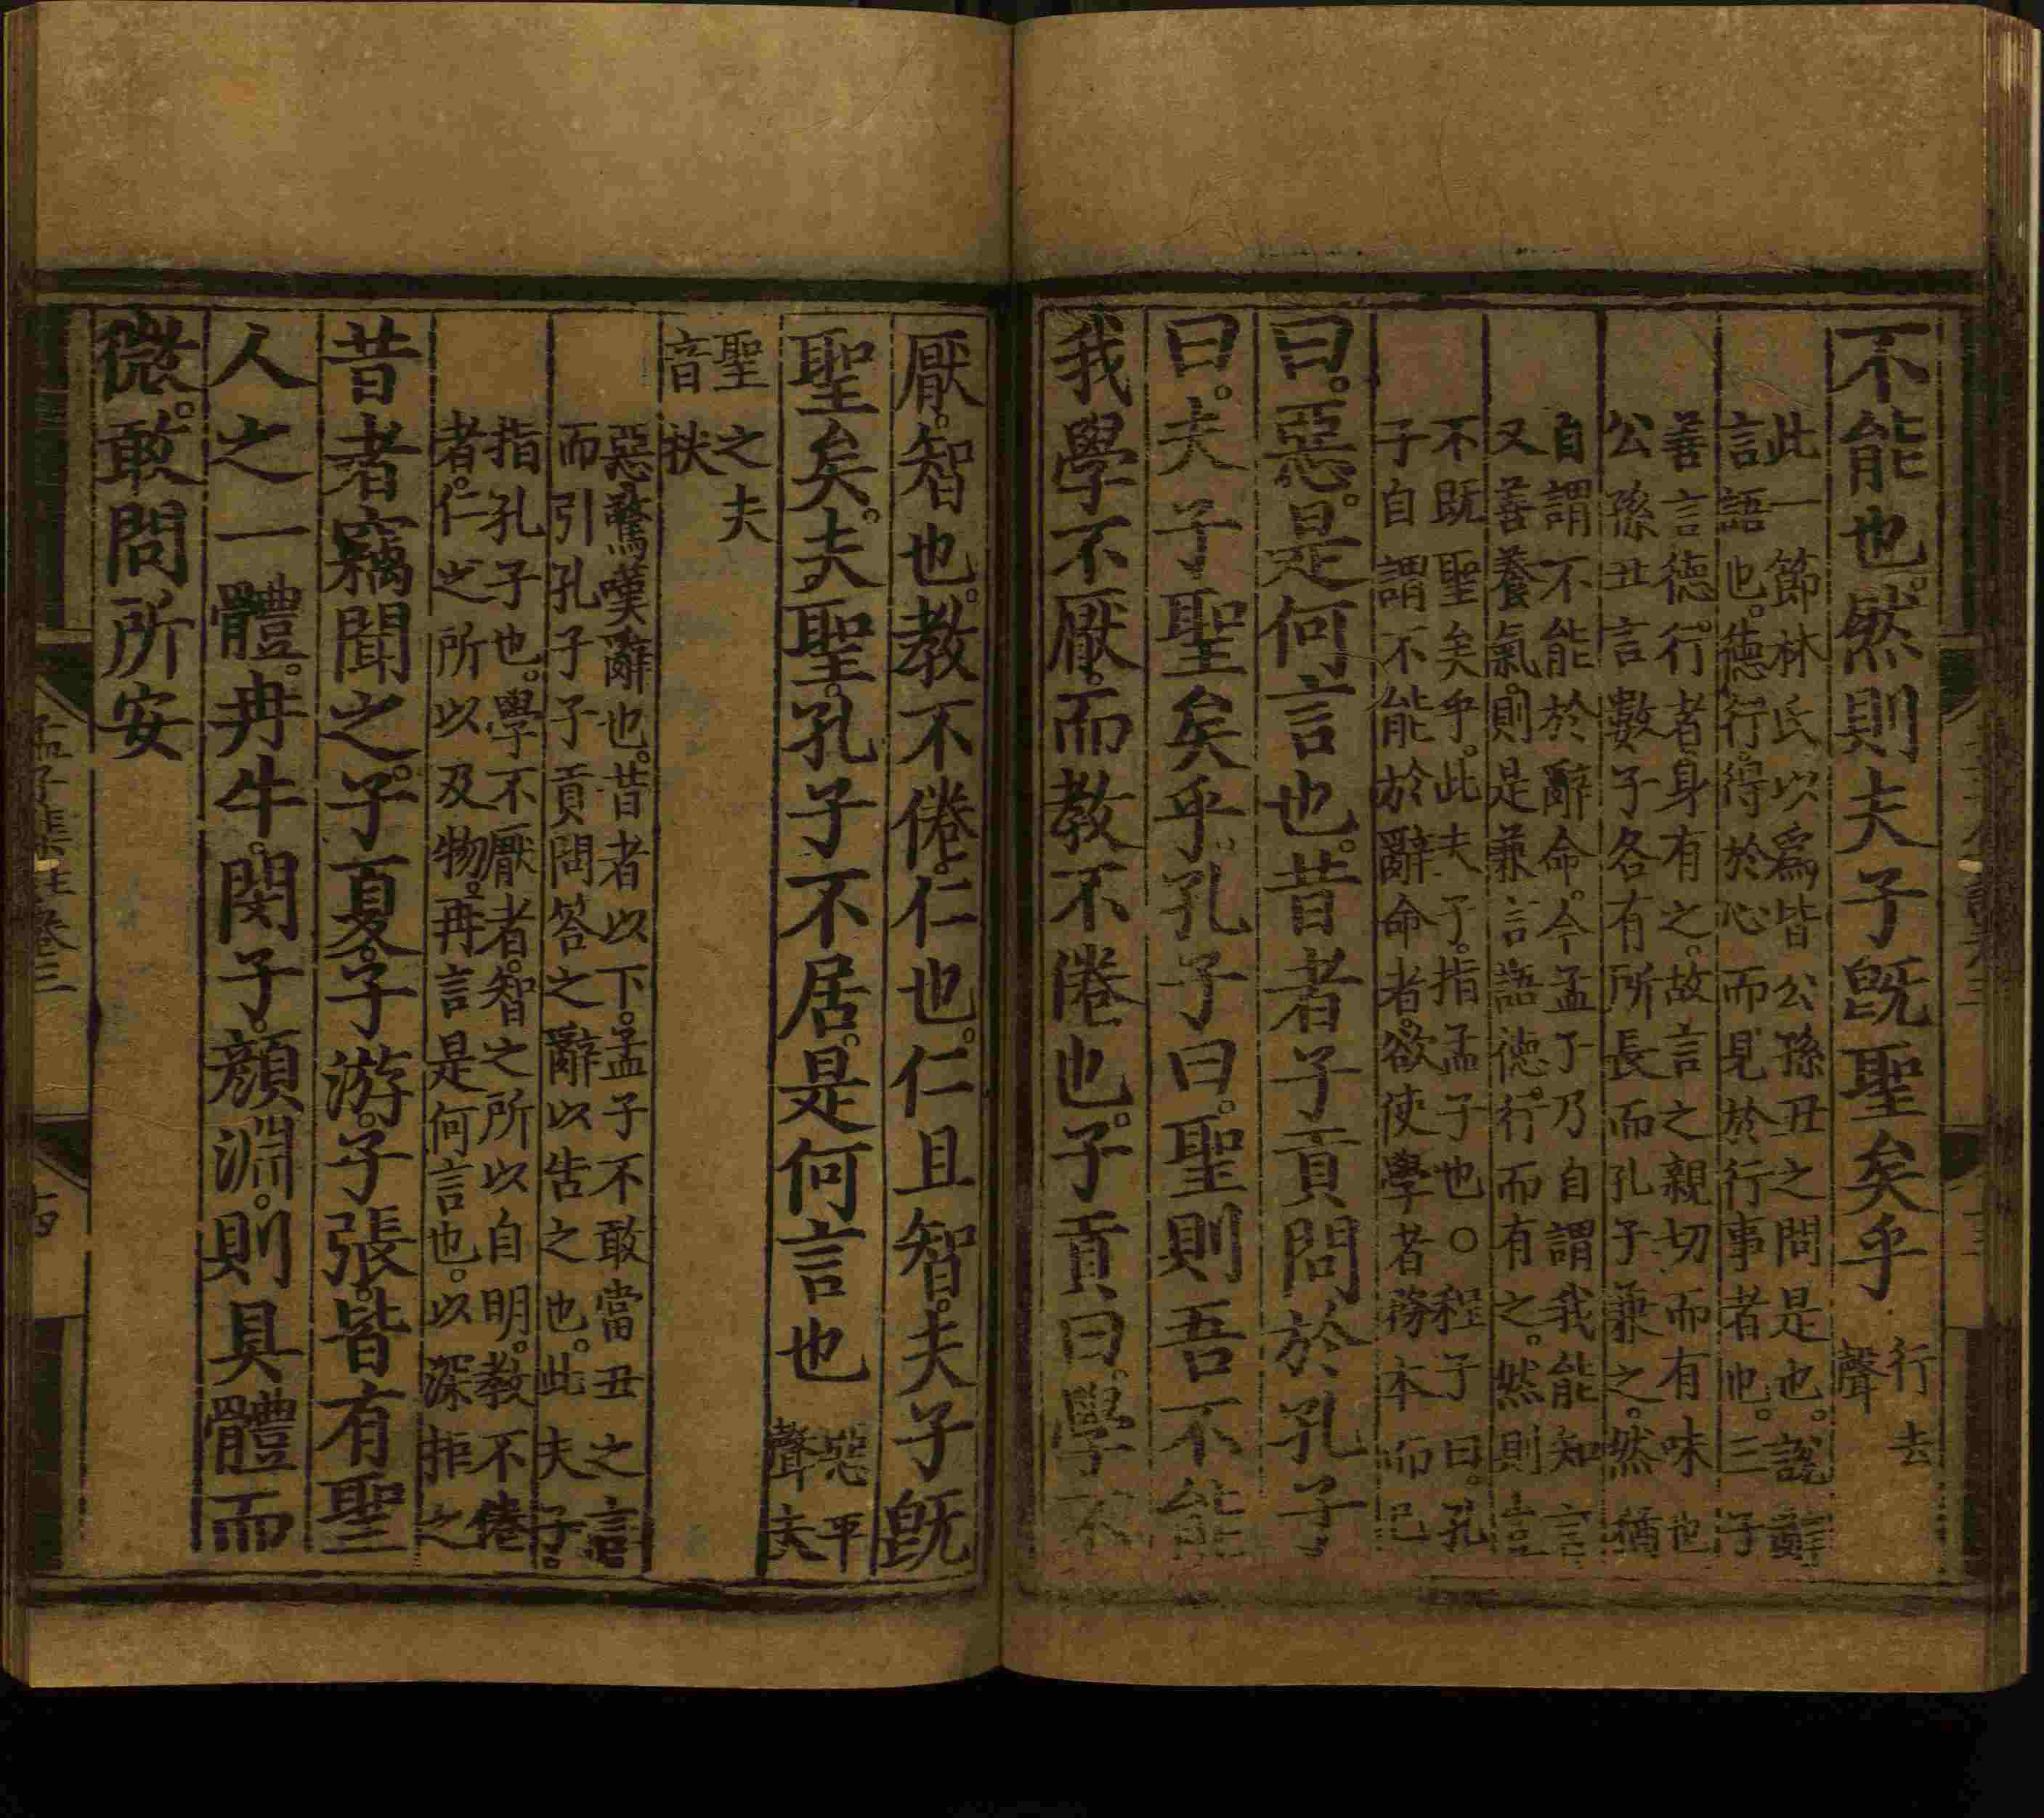 不能也。然則夫子既聖矣乎 行去
聲
此一節林氏以爲皆公孫丑之問是也。說辭
言語也。德行。得於心而見於行事者也。三子
善言德行者。身有之。故言之親切而有味也
公孫丑言數子各有所長而孔子兼之。然猶
自謂不能於辭命。今孟子乃自謂我能知言
又善養氣。則是兼言語德行而有之。然則豈
不既聖矣乎。此夫子。指孟子也○程子曰。孔
子自謂不能於辭命者。欲使學者務本而已
曰。惡。是何言也。昔者子貢問於孔子
曰。夫子聖矣乎。孔子曰。聖則吾不能
我學不厭。而教不倦也。子貢曰。學不
厭。智也。教不倦。仁也。仁且智。夫子既
聖矣。夫聖。孔子不居。是何言也 惡平
聲夫
聖之夫
音扶
惡驚嘆辭也。昔者以下。孟子不敢當丑之言
而引孔子子貢問答之辭以告之也。此夫子。
指孔子也。學不厭者。智之所以自明。教不倦
者。仁之所以及物。再言是何言也。以深拒之
昔者竊聞之。子夏。子游。子張。皆有聖
人之一體。冉牛。閔子。顏淵。則具體而
微。敢問所安
孟子集註卷三
十四